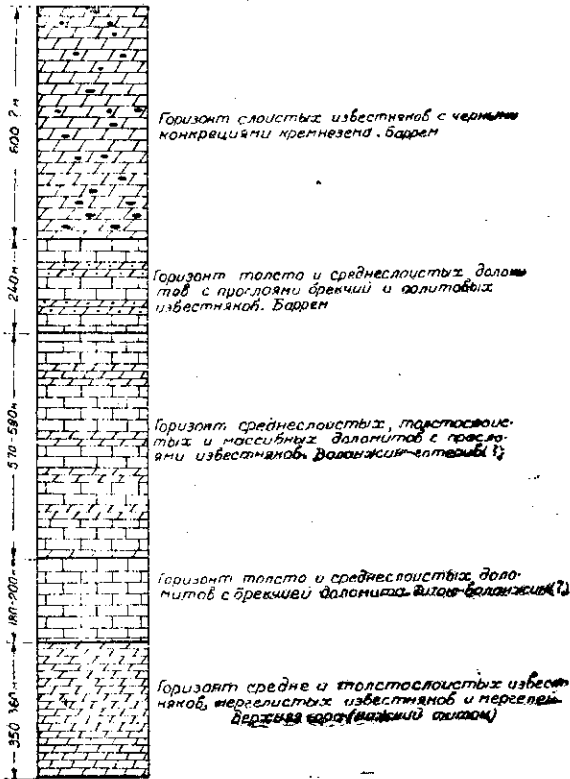 600 ? м
Горизонт слоистых известняков с черными
конкрециями кремнезема. Баррем
240 м
Горизонт толсто и среднеслоистых доломи
тов с прослоями брекчий и оолитовых
известняков. Баррем
570-580 м
Горизонт среднеслоистых, толстослоис-
тых и массивных доломитов с просло-
ями известняков. Валанжин-готерив(?)
180-200 м
Горизонт толсто и среднеслоистых доло-
митов с брекчией доломита. Титон-Валанжин(?)
350 360 м
Горизонт средне и толстослоистых извест
няков, мергелистых известняков и мергелей
Верхняя юра (нижний титон)